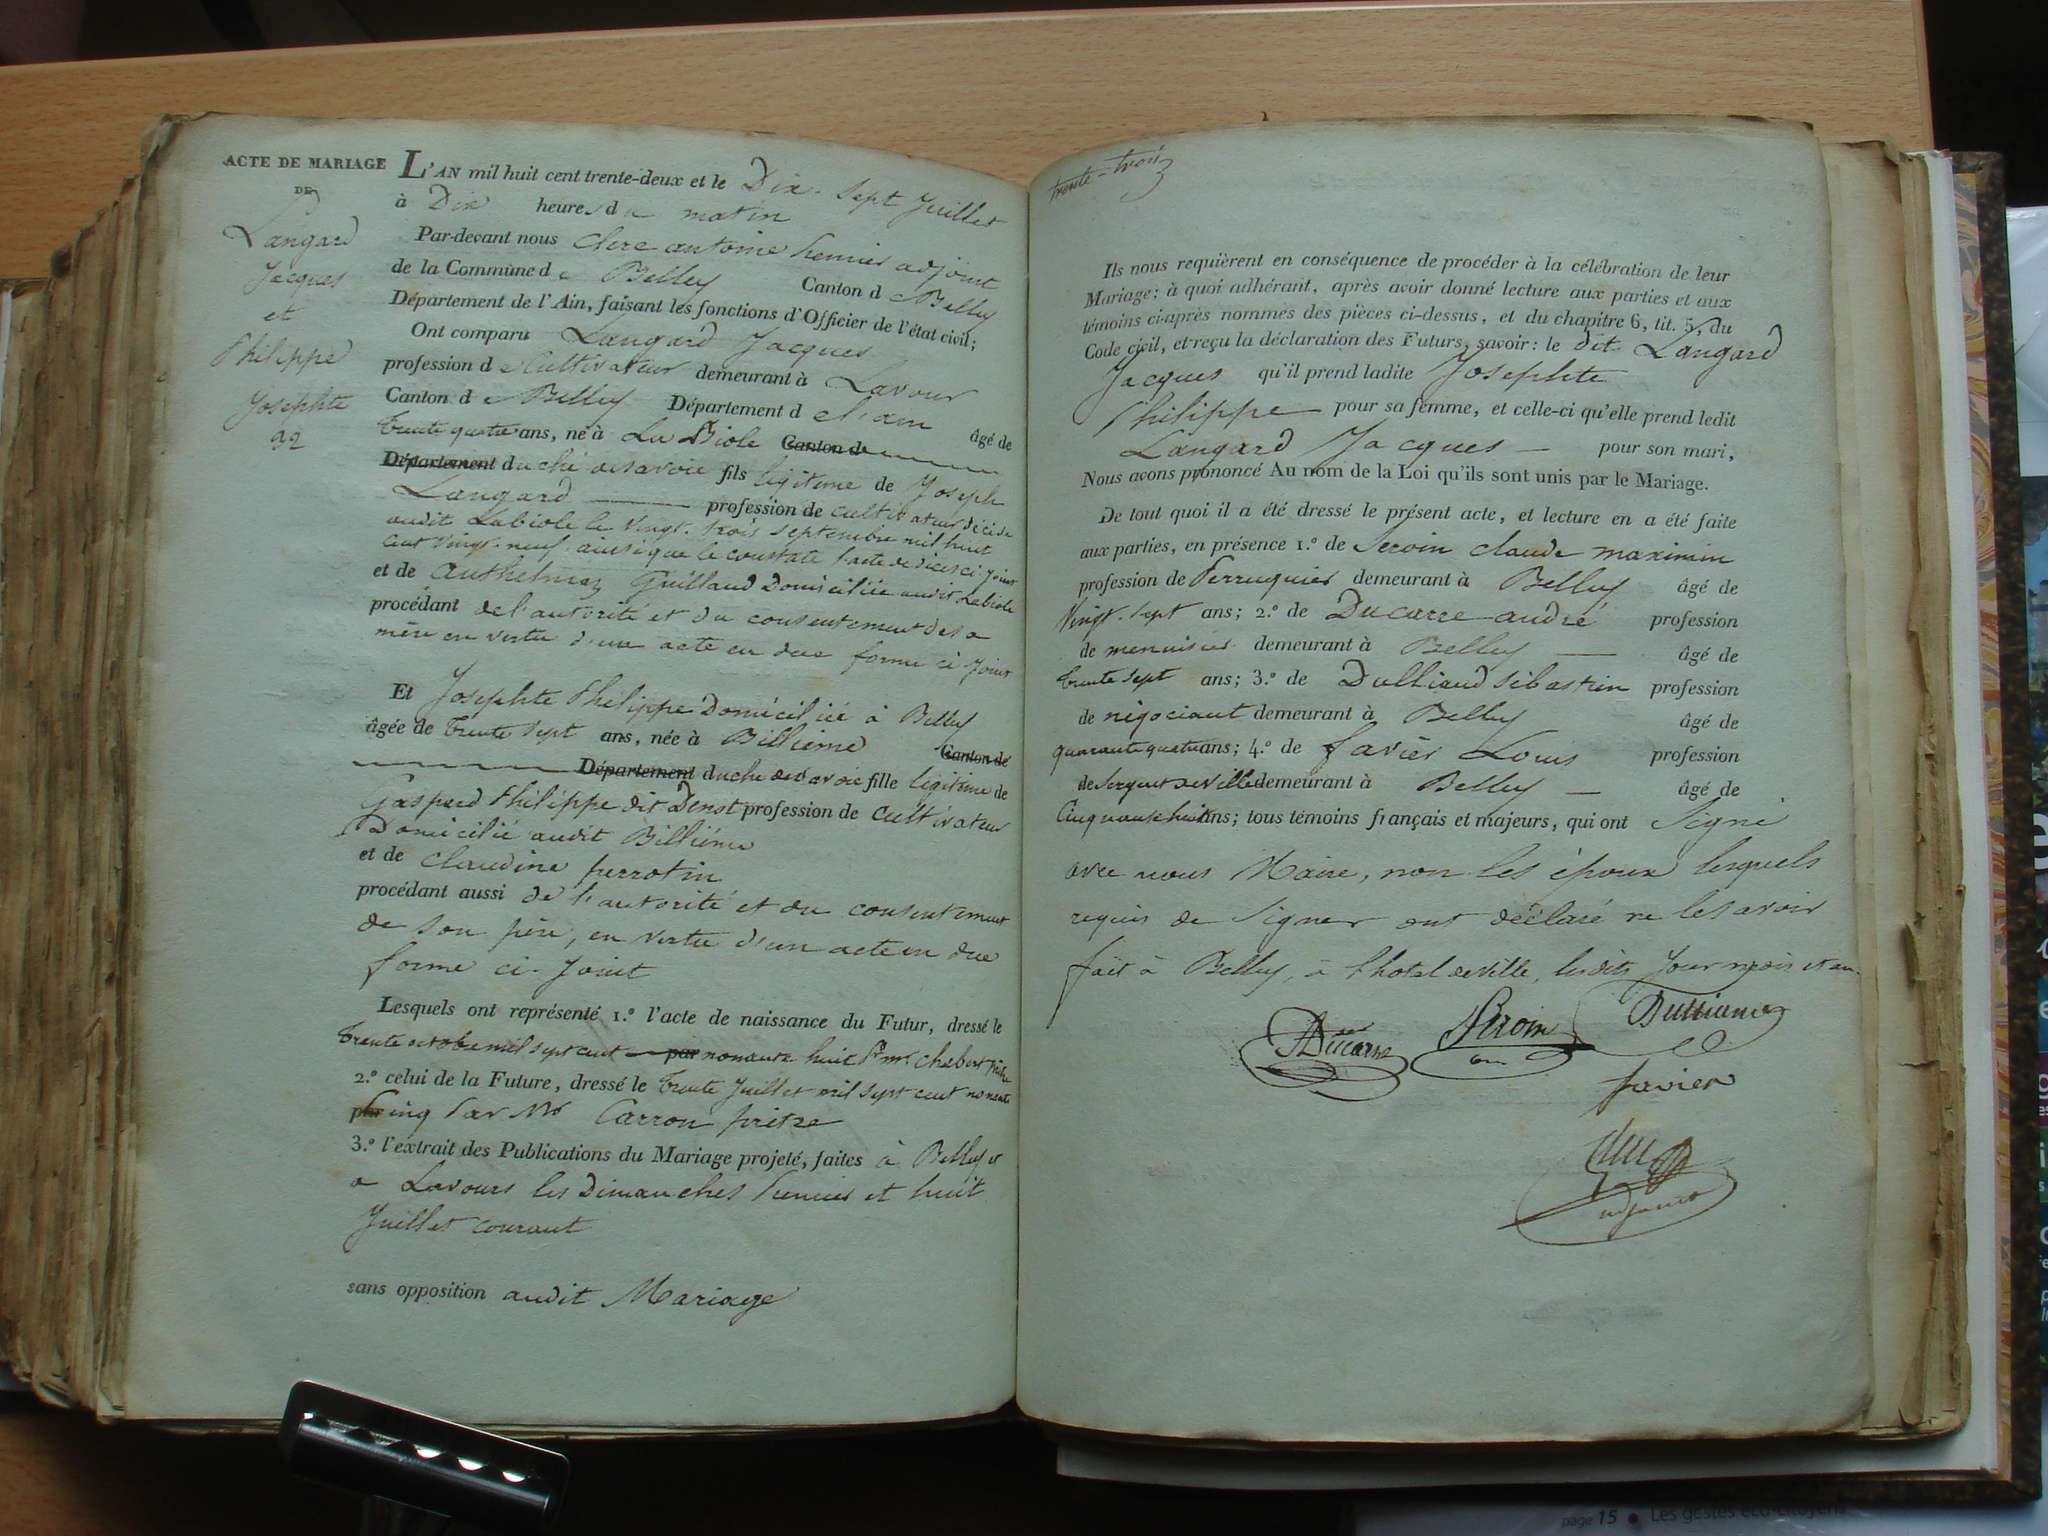 ACTE DE MARIAGE
DE
Langard
Jacques
et
Philippe
Josephte
L'AN mil huit cent trente-deux et le Dix-sept Juillet
à Dix heures du matin
Par-devant nous Clerc antoine premier adjoint
de la Commune de Belley Canton de Belley
Département de l'Ain, faisant les fonctions d'Officier de l'état civil;
Ont comparu Langard Jacques
profession de Cultivateur demeurant à Lavour
Canton de Belley Département de l'ain âgé de
trente quatre ans, né à La Biole Canton de
Département duché de savoie fils légitime de Joseph
Langard profession de cultivateur décédé
audit Labiole le vingt-trois septembre mil huit
cent vingt-neuf ainsi que le constate l'acte de décès ci-joint
et de Anthelmaz Guillaud Domiciliée audit Labiole
procédant de l'autorité et du consentement de sa
mère en vertu d'une acte en due forme ci joint
Et Josephte Philippe Domiciliée à Belley
âgée de trente sept ans, née à Billième Canton de
Département duché de savoie fille légitime de
Gaspard Philippe dit Denot profession de cultivateur
Domicilié audit Billième
et de Claudine perrotin
procédant aussi de l'autorité et du consentement
de son père, en vertu d'un acte en due
forme ci-joint
Lesquels ont représenté 1.° l'acte de naissance du Futur, dressé le
trente octobre mil sept cent par nonante huit Pr Mr. Chabert prêtre
2.° celui de la Future, dressé le trente Juillet mil sept cent nonante
cinq Par Mr Carron prêtre
3.° l'extrait des Publications du Mariage projeté, faites à Belley et
a Lavours les Dimanches premier et huit
Juillet courant
sans opposition audit Mariage
trente-trois
Ils nous requièrent en conséquence de procéder à la célébration de leur
Mariage; à quoi adhérant, après avoir donné lecture aux parties et aux
témoins ci-après nommés des pièces ci-dessus, et du chapitre 6, tit. 5, du
Code civil, et reçu la déclaration des Futurs, savoir: le dit Langard
Jacques qu'il prend ladite Josephte
Philippe pour sa femme, et celle-ci qu'elle prend ledit
Langard Jacques pour son mari,
Nous avons prononcé Au nom de la Loi qu'ils sont unis par le Mariage.
De tout quoi il a été dressé le présent acte, et lecture en a été faite
aux parties, en présence 1.° de Seroin claude maximin
profession de Perruquier demeurant à Belley âgé de
vingt-sept ans; 2.° de Ducarre andré profession
de menuisier demeurant à Belley âgé de
trente sept ans; 3.° de Dulliand sébastien profession
de négociant demeurant à Belley âgé de
quarante quatre ans; 4.° de favier Louis profession
de Sergent de Ville demeurant à Belley âgé de
Cinquante huit ans; tous témoins français et majeurs, qui ont Signé
avec nous Maire, non les époux lesquels
requis de signer ont déclaré ne le savoir
fait à Belley, à l'hotel de Ville, lesdits Jour mois et an.
Ducarre Seroin Dulliand
favier
adjoint
page 15 • Les gestes éco-citoyens